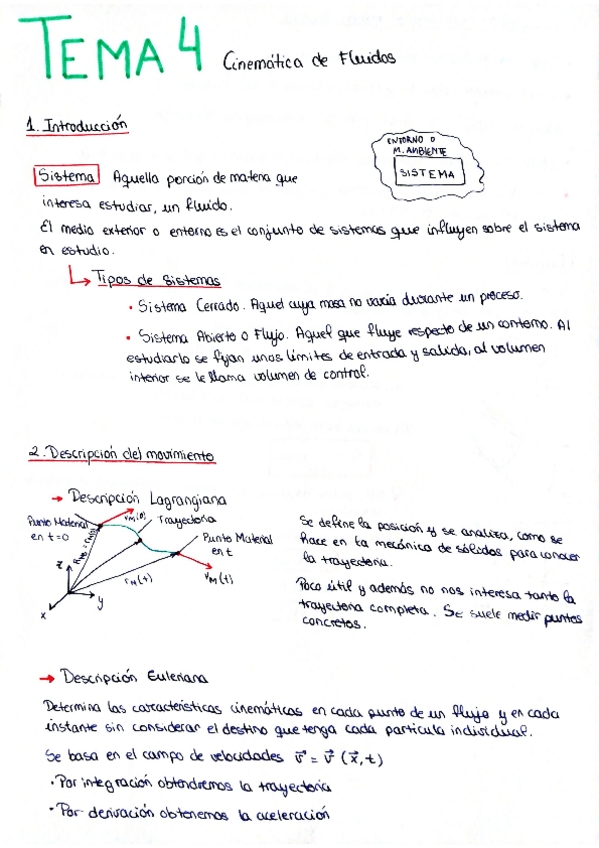 TEMA 4 Cinemática de Fluidos
1. Introducción
ENTORNO O
M. AMBIENTE
SISTEMA
Sistema Aquella porción de materia que
interesa estudiar, un fluido.
El medio exterior o entorno es el conjunto de sistemas que influyen sobre el sistema
en estudio.
Tipos de sistemas
• Sistema Cerrado. Aquel cuya masa no varía durante un proceso.
• Sistema Abierto o Flujo. Aquel que fluye respecto de un contorno. Al
estudiarlo se fijan unos límites de entrada y salida, al volumen
interior se le llama volumen de control.
2. Descripción del movimiento
→ Descripción Lagrangiana
Punto Material
en t=0
v_M(0)
Trayectoria
Punto Material
en t
r_M(t)
v_M(t)
z
y
x
Se define la posición y se analiza, como se
hace en la mecánica de sólidos para conocer
la trayectoria.
Poco útil y además no nos interesa tanto la
trayectoria completa. Se suele medir puntos
concretos.
→ Descripción Euleriana
Determina las características cinemáticas en cada punto de un flujo y en cada
instante sin considerar el destino que tenga cada partícula individual.
Se basa en el campo de velocidades v⃗ = v⃗ (x⃗,t)
• Por integración obtendremos la trayectoria
• Por derivación obtenemos la aceleración